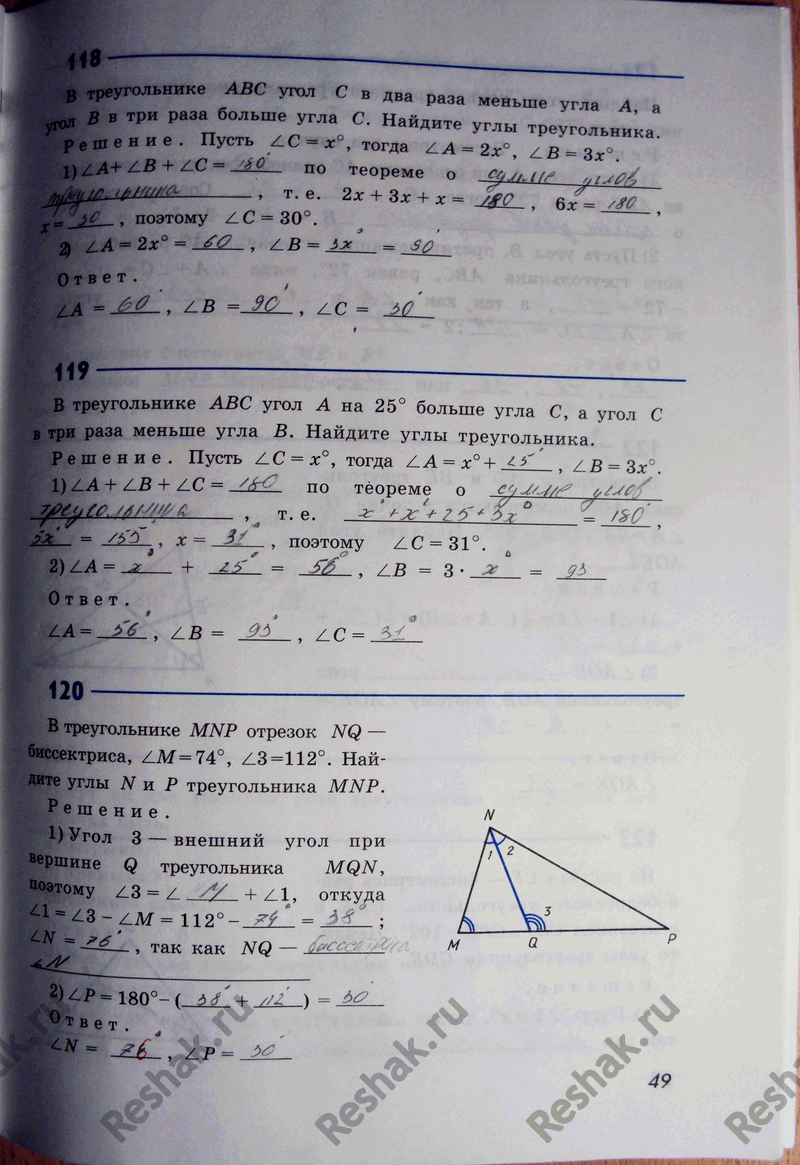 118
В треугольнике ABC угол C в два раза меньше угла A, а
угол B в три раза больше угла C. Найдите углы треугольника.
Решение. Пусть ∠C = x°, тогда ∠A = 2x°, ∠B = 3x°.
1) ∠A + ∠B + ∠C = 180 по теореме о сумме углов
треугольника, т. е. 2x + 3x + x = 180, 6x = 180,
x = 30, поэтому ∠C = 30°.
2) ∠A = 2x° = 60, ∠B = 3x = 90
Ответ.
∠A = 60, ∠B = 90, ∠C = 30
119
В треугольнике ABC угол A на 25° больше угла C, а угол C
в три раза меньше угла B. Найдите углы треугольника.
Решение. Пусть ∠C = x°, тогда ∠A = x° + 25°, ∠B = 3x°.
1) ∠A + ∠B + ∠C = 180 по теореме о сумме углов
треугольника, т. е. x° + x° + 25° + 3x° = 180°,
5x° = 155°, x = 31°, поэтому ∠C = 31°.
2) ∠A = x° + 25° = 56°, ∠B = 3 · x = 93°
Ответ.
∠A = 56°, ∠B = 93°, ∠C = 31°
120
В треугольнике MNP отрезок NQ —
биссектриса, ∠M = 74°, ∠3 = 112°. Най-
дите углы N и P треугольника MNP.
Решение.
1) Угол 3 — внешний угол при
вершине Q треугольника MQN,
поэтому ∠3 = ∠ M + ∠1, откуда
∠1 = ∠3 – ∠M = 112° – 74° = 38°;
∠N = 76°, так как NQ — биссектриса
∠N
2) ∠P = 180° – (38° + 112°) = 30
Ответ.
∠N = 76, ∠P = 30°
N
1
2
3
M
Q
P
49
Reshak.ru
Reshak.ru
Reshak.ru